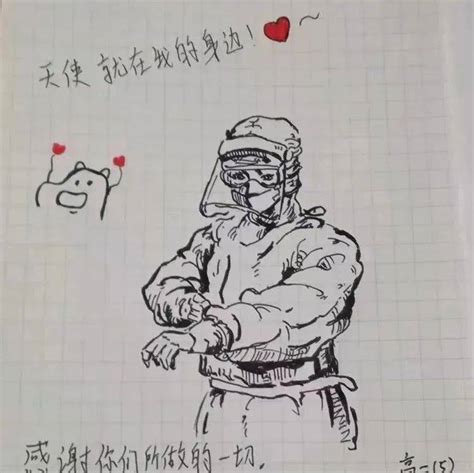 天使 就在我的身边!
感谢你们所做的一切.
高二(5)